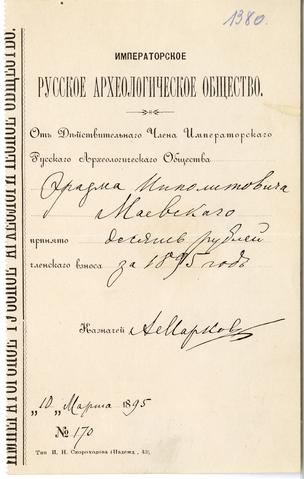 1380.
ИМПЕРАТОРСКОЕ
РУССКОЕ АРХЕОЛОГИЧЕСКОЕ ОБЩЕСТВО.
Отъ Дѣйствительнаго Члена Императорскаго
Русскаго Археологическаго Общества
Эразма Ипполитовича
Маевскаго
принято десять рублей
членскаго взноса за 1895 годъ
Казначей АМарковъ
„10„ Марта 1895
№ 170
Тип И. Н. Скороходова (Надежд., 43)
ИМПЕРАТОРСКОЕ РУССКОЕ АРХЕОЛОГИЧЕСКОЕ ОБЩЕСТВО.